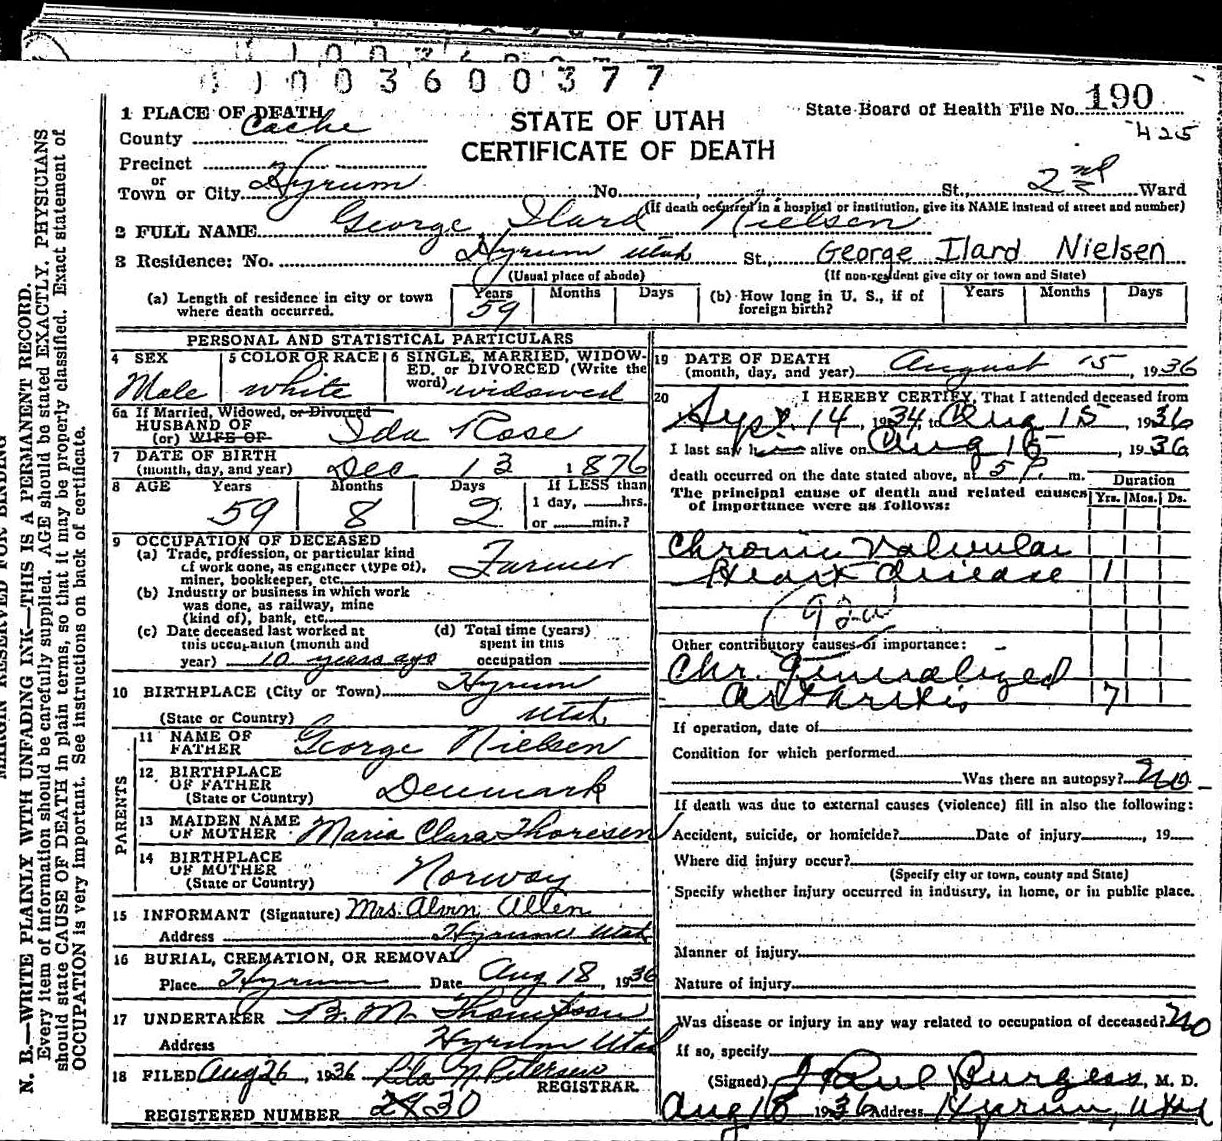 1003600377
190
State Board of Health File No. 190
425
STATE OF UTAH
CERTIFICATE OF DEATH
1 PLACE OF DEATH
County Cache
Precinct
or
Town or City Hyrum No. St., 2nd Ward
(If death occurred in a hospital or institution, give its NAME instead of street and number)
2 FULL NAME George Ilard Nielsen
3 Residence: No. Hyrum Utah St., George Ilard Nielsen
(Usual place of abode) (If non-resident give city or town and State)
(a) Length of residence in city or town where death occurred. Years 59 Months Days
(b) How long in U. S., if of foreign birth? Years Months Days
PERSONAL AND STATISTICAL PARTICULARS
4 SEX Male
5 COLOR OR RACE white
6 SINGLE, MARRIED, WIDOW-
ED, or DIVORCED (Write the
word) widowed
6a If Married, Widowed, or Divorced
HUSBAND OF
(or) WIFE OF Ida Rose
7 DATE OF BIRTH
(month, day, and year) Dec 13 1876
8 AGE Years 59 Months 8 Days 2
If LESS than
1 day, hrs.
or min.?
9 OCCUPATION OF DECEASED
(a) Trade, profession, or particular kind
of work done, as engineer (type of),
miner, bookkeeper, etc. Farmer
(b) Industry or business in which work
was done, as railway, mine
(kind of), bank, etc.
(c) Date deceased last worked at
this occupation (month and
year) 10 years ago
(d) Total time (years)
spent in this
occupation
10 BIRTHPLACE (City or Town) Hyrum
(State or Country) Utah
PARENTS
11 NAME OF
FATHER George Nielsen
12 BIRTHPLACE
OF FATHER
(State or Country) Denmark
13 MAIDEN NAME
OF MOTHER Maria Clara Thoresen
14 BIRTHPLACE
OF MOTHER
(State or Country) Norway
15 INFORMANT (Signature) Mrs. Alvin Allen
Address Hyrum Utah
16 BURIAL, CREMATION, OR REMOVAL
Place Hyrum Date Aug 18, 1936
17 UNDERTAKER B. M. Thompson
Address Hyrum Utah
18 FILED Aug 26, 1936 Petersen
REGISTRAR.
REGISTERED NUMBER 30
19 DATE OF DEATH
(month, day, and year) August 15, 1936
20 I HEREBY CERTIFY, That I attended deceased from
Sept. 14, 1934, to Aug 15, 1936
I last saw him alive on Aug 15, 1936
death occurred on the date stated above, at 5 P. m.
The principal cause of death and related causes
of importance were as follows:
Duration
Yrs. Mos. Ds.
Chronic Valvular
Heart disease 1
92a
Other contributory causes of importance:
Chr. Generalized
arthritis 7
If operation, date of
Condition for which performed
Was there an autopsy? No
If death was due to external causes (violence) fill in also the following:
Accident, suicide, or homicide? Date of injury, 19
Where did injury occur?
(Specify city or town, county and State)
Specify whether injury occurred in industry, in home, or in public place.
Manner of injury
Nature of injury
Was disease or injury in any way related to occupation of deceased? No
If so, specify
(Signed) J Paul Burgess, M. D.
Aug 18 1936 Address Hyrum, Utah
MARGIN RESERVED FOR BINDING
N. B.—WRITE PLAINLY WITH UNFADING INK—THIS IS A PERMANENT RECORD.
Every item of information should be carefully supplied. AGE should be stated EXACTLY. PHYSICIANS
should state CAUSE OF DEATH in plain terms, so that it may be properly classified. Exact statement of
OCCUPATION is very important. See instructions on back of certificate.